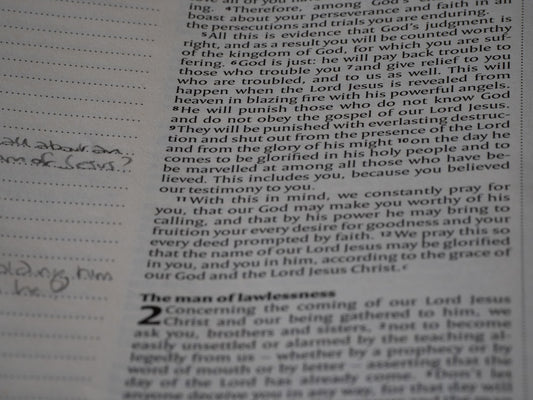 all about am
am of Jesus?
olding him
ing. ⁴Therefore, among God's
boast about your perseverance and faith in all
the persecutions and trials you are enduring.
⁵All this is evidence that God's judgment is
right, and as a result you will be counted worthy
of the kingdom of God, for which you are suf-
fering. ⁶God is just: he will pay back trouble to
those who trouble you ⁷and give relief to you
who are troubled, and to us as well. This will
happen when the Lord Jesus is revealed from
heaven in blazing fire with his powerful angels.
⁸He will punish those who do not know God
and do not obey the gospel of our Lord Jesus.
⁹They will be punished with everlasting destruc-
tion and shut out from the presence of the Lord
and from the glory of his might ¹⁰on the day he
comes to be glorified in his holy people and to
be marvelled at among all those who have be-
lieved. This includes you, because you believed
our testimony to you.
¹¹With this in mind, we constantly pray for
you, that our God may make you worthy of his
calling, and that by his power he may bring to
fruition your every desire for goodness and your
every deed prompted by faith. ¹²We pray this so
that the name of our Lord Jesus may be glorified
in you, and you in him, according to the grace of
our God and the Lord Jesus Christ.ᶜ
The man of lawlessness
2 Concerning the coming of our Lord Jesus
Christ and our being gathered to him, we
ask you, brothers and sisters, ²not to become
easily unsettled or alarmed by the teaching al-
legedly from us – whether by a prophecy or by
word of mouth or by letter – asserting that the
day of the Lord has already come. ³Don't let
anyone deceive you in any way, for that day will